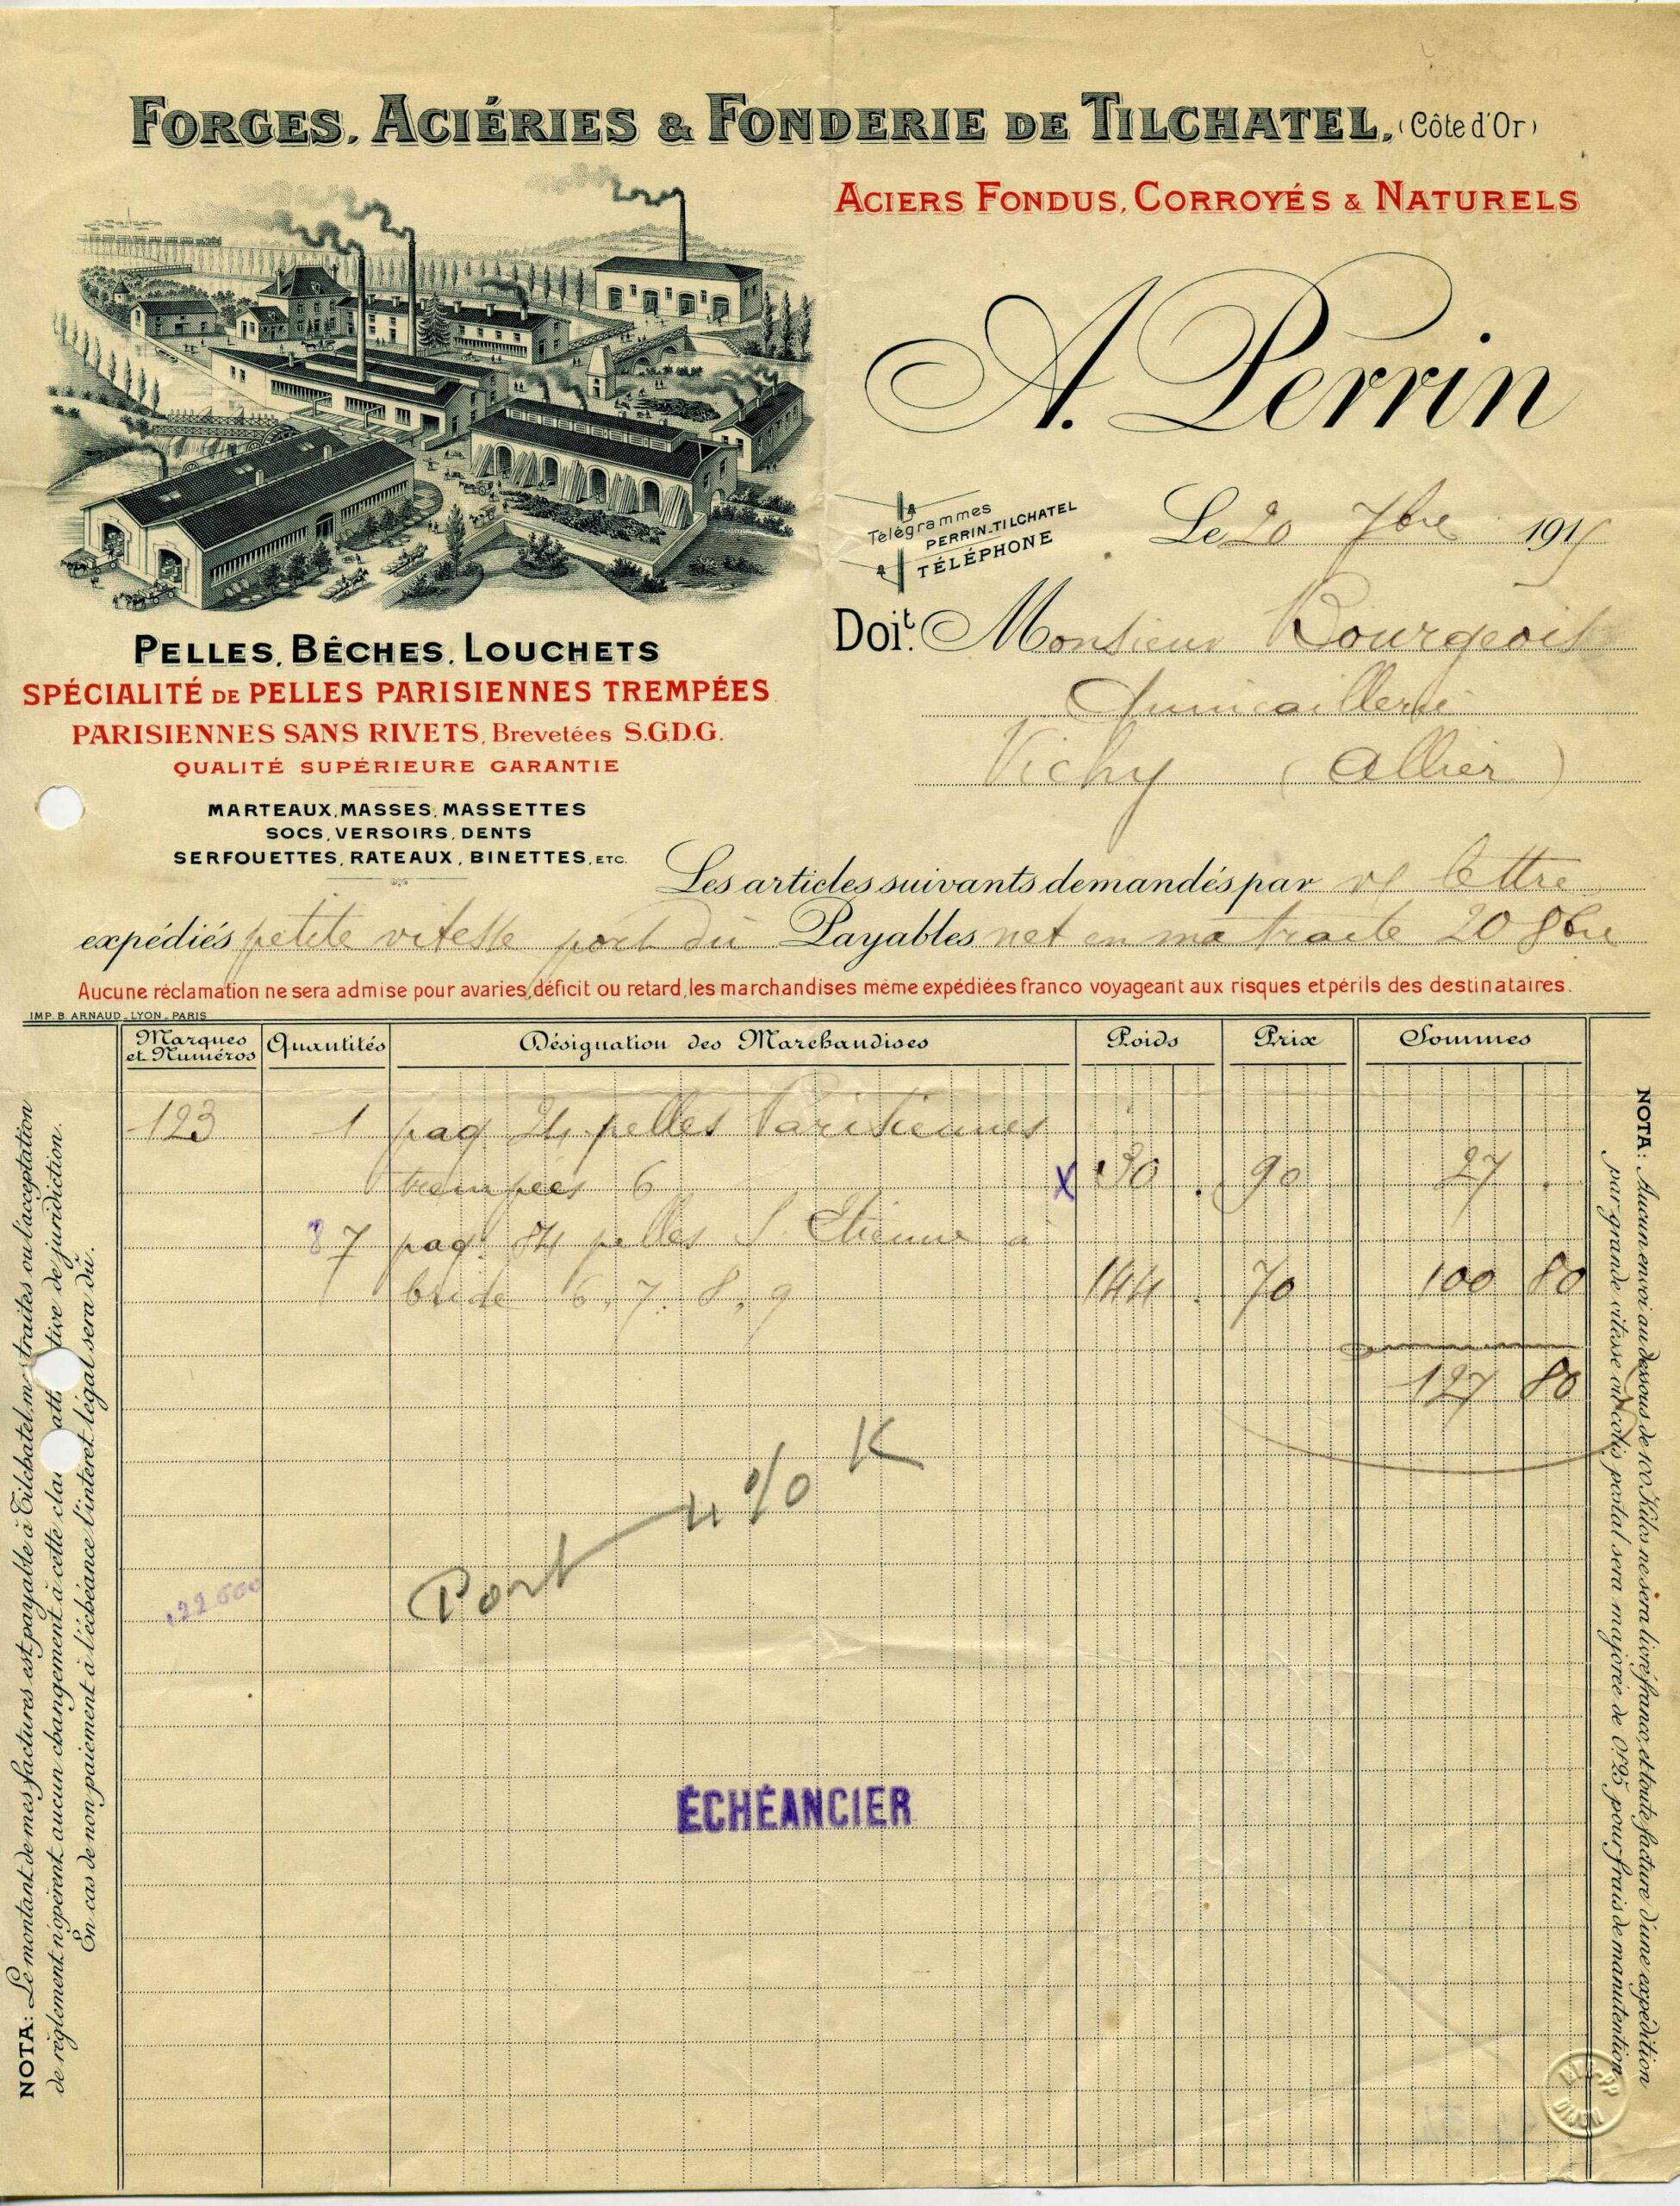 FORGES, ACIÉRIES & FONDERIE DE TILCHATEL, (Côte d'Or)
ACIERS FONDUS, CORROYÉS & NATURELS
A. Perrin
Télégrammes
PERRIN-TILCHATEL
TÉLÉPHONE
Le 20 7bre 191
Doit. Monsieur Bourgeois
Quincaillerie
Vichy (Allier)
PELLES, BÊCHES, LOUCHETS
SPÉCIALITÉ DE PELLES PARISIENNES TREMPÉES
PARISIENNES SANS RIVETS, Brevetées S.G.D.G.
QUALITÉ SUPÉRIEURE GARANTIE
MARTEAUX, MASSES, MASSETTES
SOCS, VERSOIRS, DENTS
SERFOUETTES, RATEAUX, BINETTES, ETC.
Les articles suivants demandés par vs lettre
expédiés petite vitesse port dû Payables net en ma traite 20 8bre
Aucune réclamation ne sera admise pour avaries, déficit ou retard, les marchandises même expédiées franco voyageant aux risques et périls des destinataires.
IMP. B. ARNAUD_LYON_PARIS
Marques et Numéros Quantités Désignation des Marchandises Poids Prix Sommes
123 1 paq 24 pelles Parisiennes
trempées 6 x 30 . 90 27 .
8 7 paq. 84 pelles S. Etienne à
bride 6, 7, 8, 9 144 . 70 100 80
127 80
Port 4 % K
122.600
ÉCHÉANCIER
NOTA: Le montant de mes factures est payable à Tilchatel, mes traites ou l'acceptation
de règlement n'opèrent aucun changement à cette clause attributive de juridiction.
En cas de non paiement à l'échéance l'intérêt légal sera dû.
NOTA: Aucun envoi au dessous de 100 Kilos ne sera livré franco, et toute facture d'une expédition
par grande vitesse ou colis postal sera majorée de 0f25 pour frais de manutention